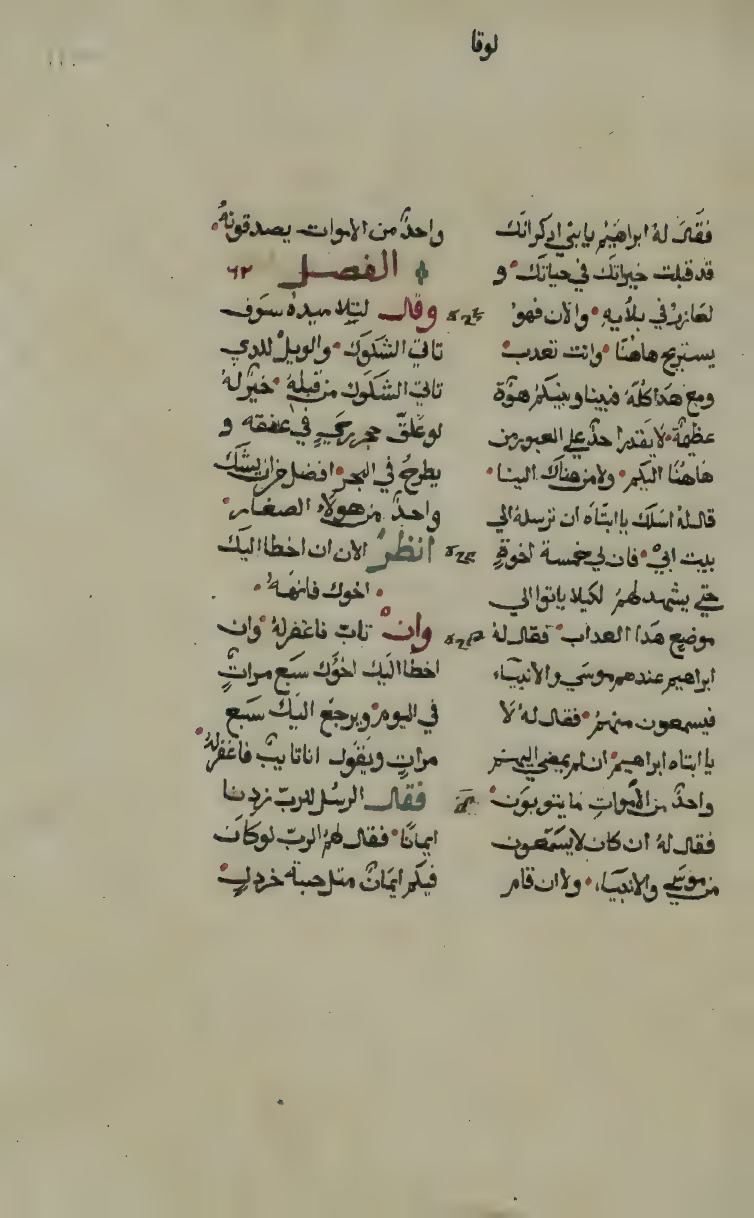 لوقا
فقال لهُ ابراهيم يا بني ادكر انك
قد قبلت خيراتك في حياتك و
لعازرُ في بلاَيه والان فهوُ
يستريح هاهنا وانت تعدب
ومع هدا كله فبيننا وبينكم هوّة
عظيمةٌ لا يقدر احدٌ علي العبور من
هاهنا اليكم ولا من هناك الينا
قال لهُ اسلك يا ابتاه ان ترسله الي
بيت ابي فان لي خمسة اخوةٍ
حتي يشهد لهمُ لكيلا ياتوا الي
موضع هدا العداب فقال لهُ
ابراهيم عندهم موسي والانبياء
فيسمعون منهمُ فقال لهُ لا
يا ابتاه ابراهيم ان لم يمضي اليهم
واحدٌ من الاموات ما يتوبون
فقال لهُ ان كان لا يسمعون
من موسي والانبياء ولا ان قام
واحدٌ من الاموات يصدقونهُ
الفصل ٦٢
وقال لتلاميدهُ سوف
تاتي الشكوك والويلُ للدي
تاتي الشكوك من قبلهُ خيرٌ لهُ
لو عُلّق حجر رحي في عنقه و
يطرحُ في البحر افضل من ان يشك
واحدٌ من هولاء الصغار
انظرُ الان ان اخطا اليك
اخوك فانههُ
وان تاب فاغفر لهُ وان
اخطا اليك اخوك سبع مراتٍ
في اليوم ويرجع اليك سبع
مراتٍ ويقول انا تايبٌ فاغفر لهُ
فقال الرسُل للربّ زدنا
ايمانًا فقال لهمُ الربّ لو كان
فيكم ايمانٌ متل حبة خردلٍ